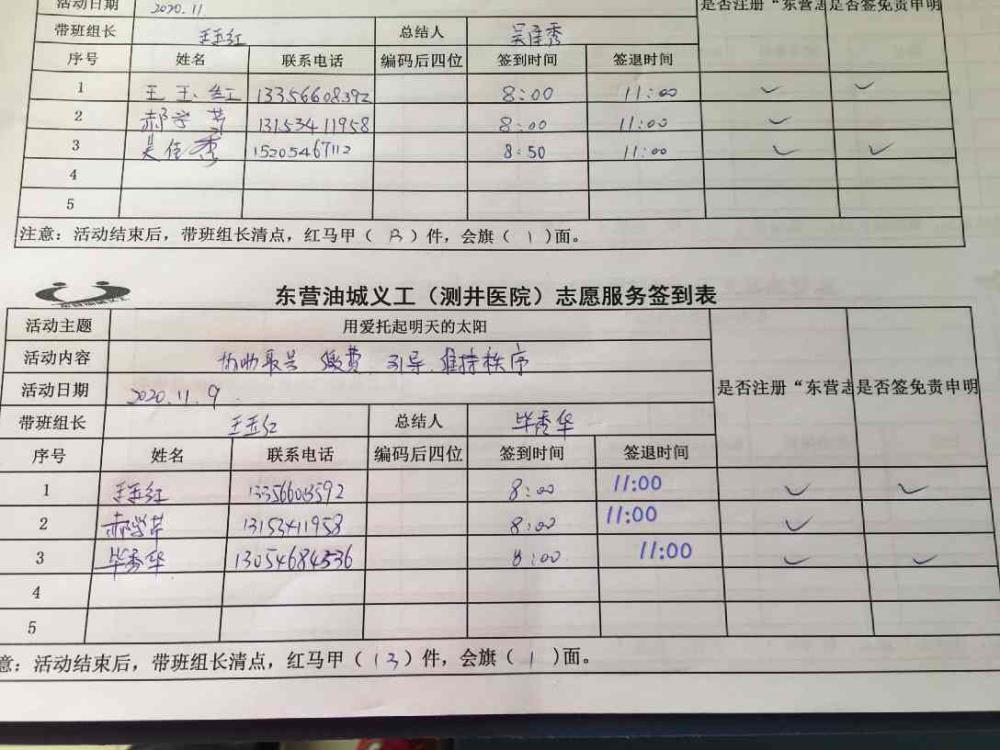 活动日期 2020.11
是否注册“东营志 是否签免责申明
带班组长 王玉红 总结人 吴佳秀
序号 姓名 联系电话 编码后四位 签到时间 签退时间
1 王玉红 13356608392 8:00 11:00 ✓ ✓
2 郝学芹 13153411958 8:00 11:00 ✓
3 吴佳秀 15205467112 8:50 11:00 ✓ ✓
4
5
注意：活动结束后，带班组长清点，红马甲（13）件，会旗（1）面。
东营油城义工（测井医院）志愿服务签到表
活动主题 用爱托起明天的太阳
活动内容 协助取号 缴费.引导.维持秩序
活动日期 2020.11.9.
是否注册“东营志 是否签免责申明
带班组长 王玉红 总结人 毕秀华
序号 姓名 联系电话 编码后四位 签到时间 签退时间
1 王玉红 8:00 11:00 ✓ ✓
2 郝学芹 13153411958 8:00 11:00 ✓
3 毕秀华 13054684536 8:00 11:00 ✓ ✓
4
5
意：活动结束后，带班组长清点，红马甲（13）件，会旗（1）面。